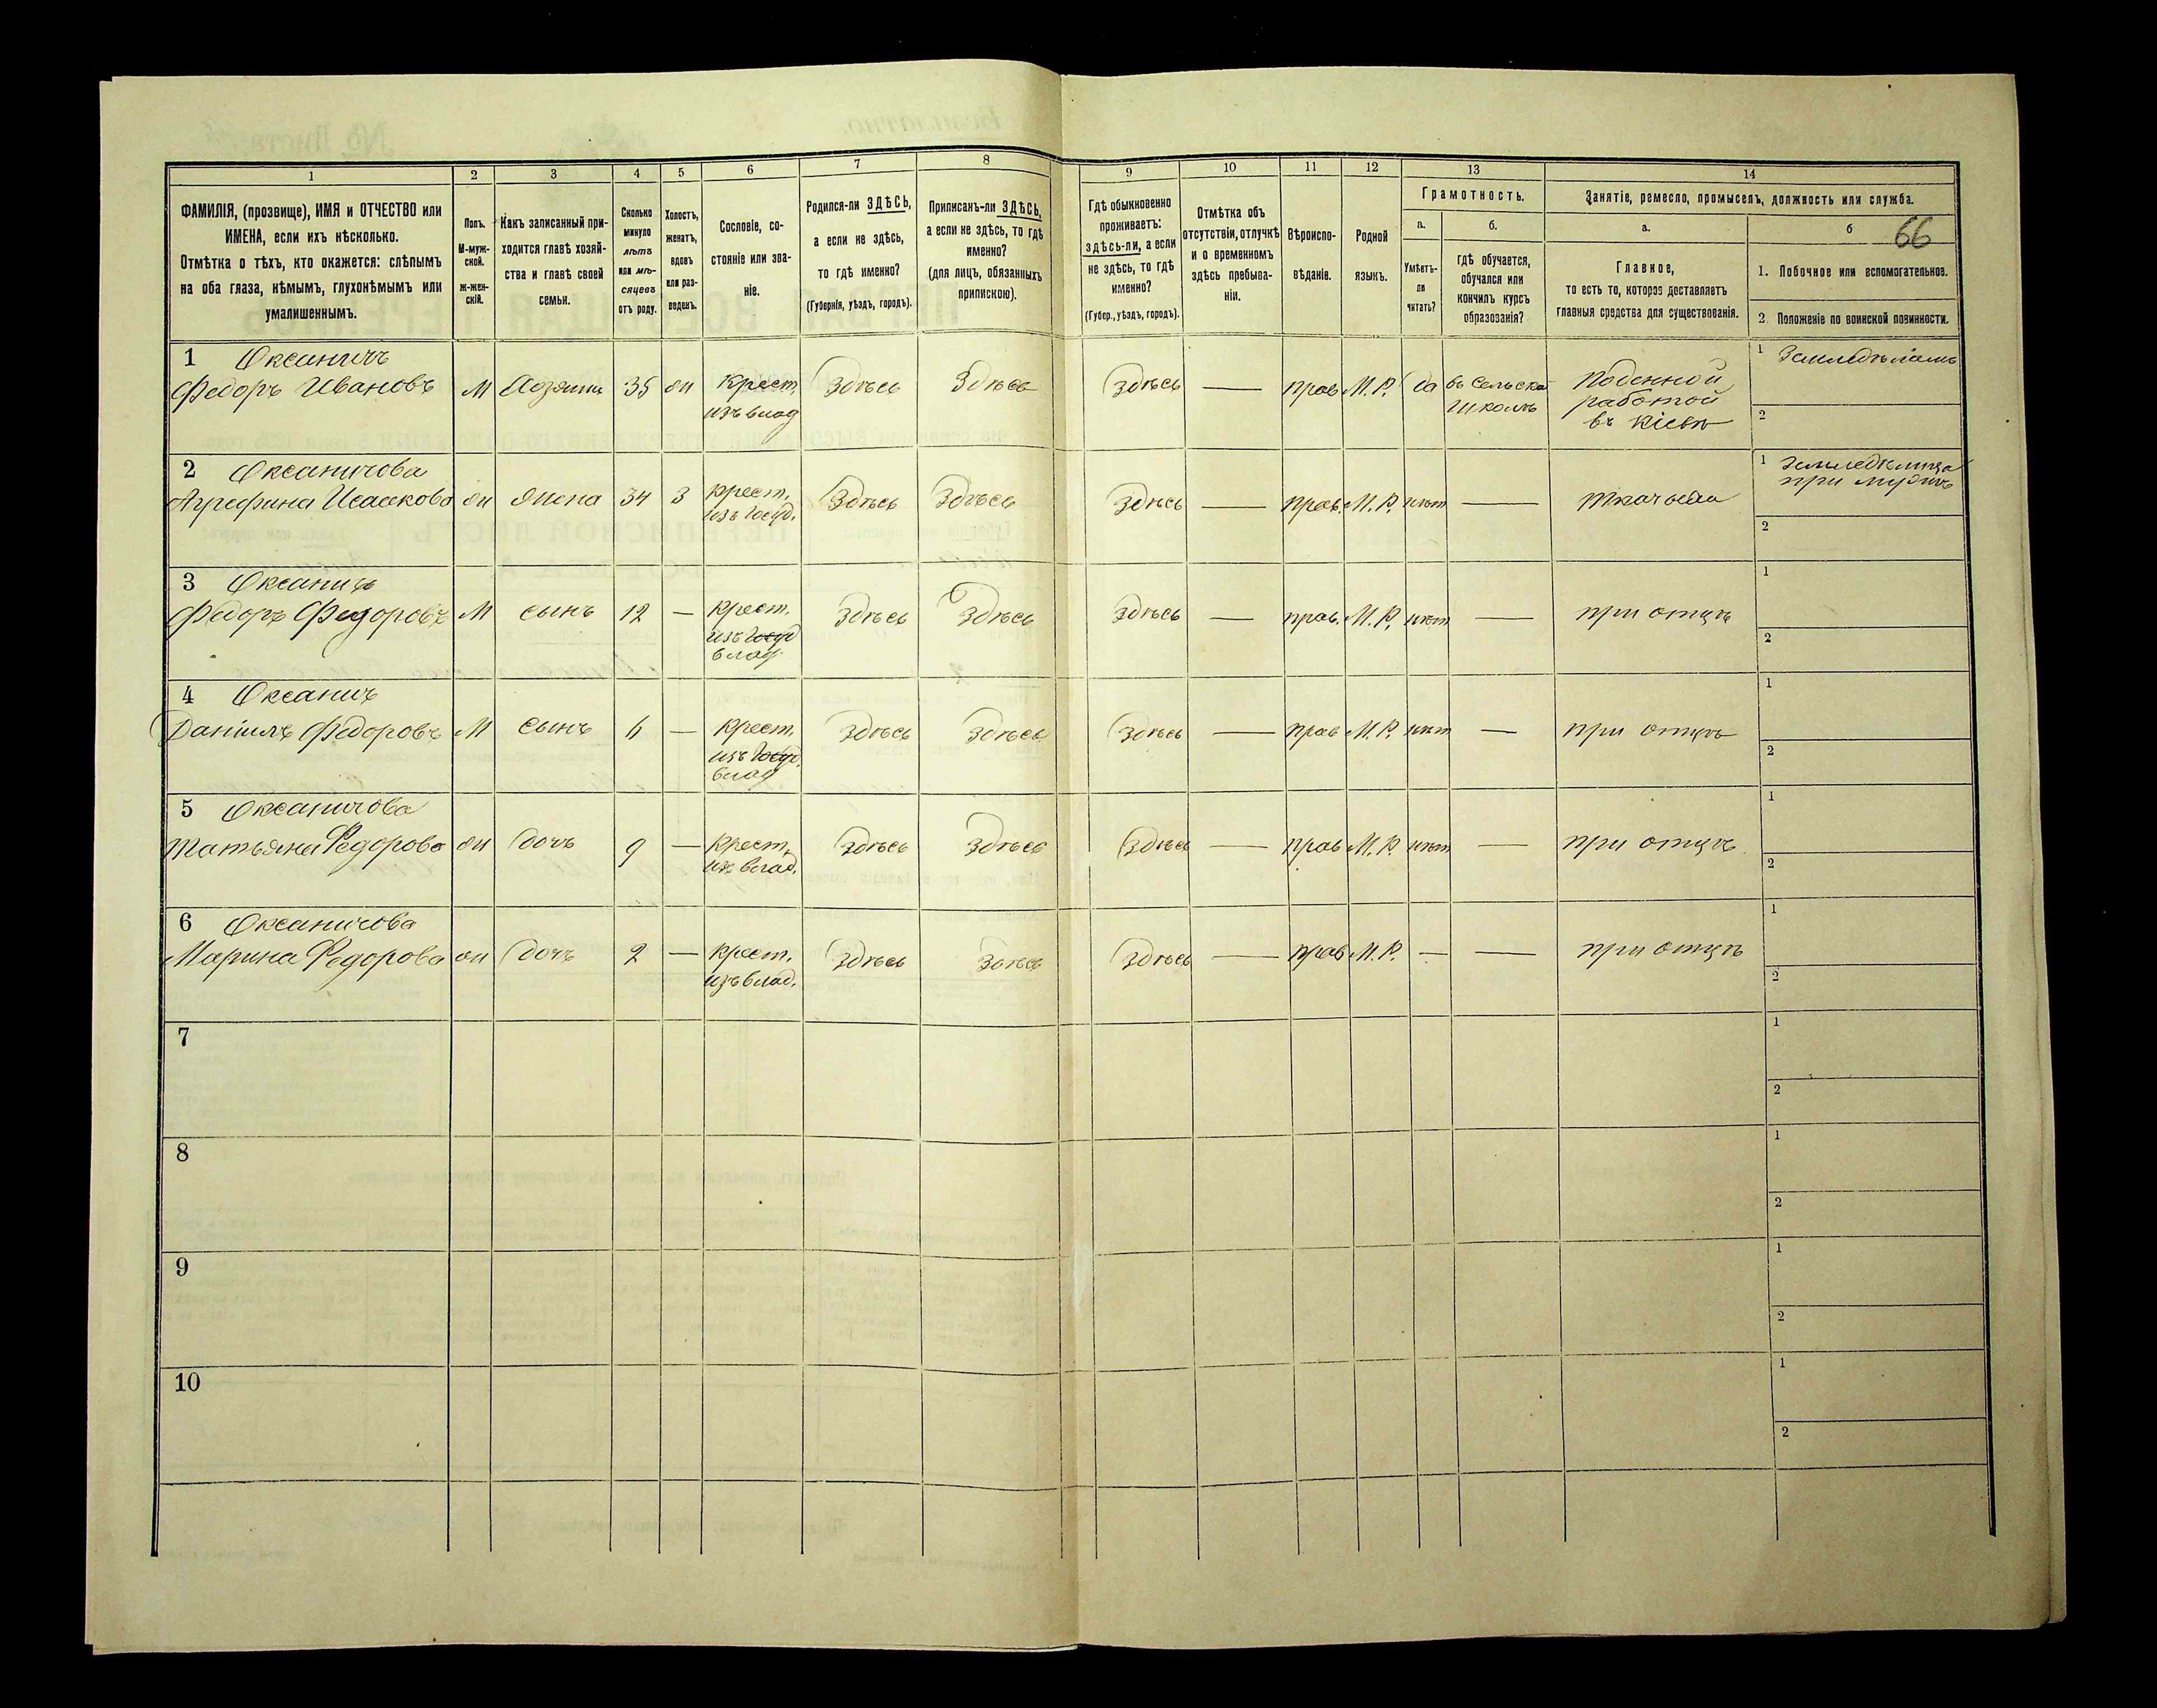 1 2 3 4 5 6 7 8 9 10 11 12 13 14
ФАМИЛІЯ, (прозвище), ИМЯ и ОТЧЕСТВО или
ИМЕНА, если ихъ нѣсколько.
Отмѣтка о тѣхъ, кто окажется: слѣпымъ
на оба глаза, нѣмымъ, глухонѣмымъ или
умалишеннымъ.
Полъ.
М-муж-
ской.
ж-жен-
скій.
Какъ записанный при-
ходится главѣ хозяй-
ства и главѣ своей
семьи.
Сколько
минуло
лѣтъ
или мѣ-
сяцевъ
отъ роду.
Холостъ,
женатъ,
вдовъ
или раз-
веденъ.
Сословіе, со-
стояніе или зва-
ніе.
Родился-ли ЗДѢСЬ,
а если не здѣсь,
то гдѣ именно?
(Губернія, уѣздъ, городъ).
Приписанъ-ли ЗДѢСЬ,
а если не здѣсь, то гдѣ
именно?
(для лицъ, обязанныхъ
припискою).
Гдѣ обыкновенно
проживаетъ:
здѣсь-ли, а если
не здѣсь, то гдѣ
именно?
(Губер., уѣздъ, городъ).
Отмѣтка объ
отсутствіи, отлучкѣ
и о временномъ
здѣсь пребыва-
ніи.
Вѣроиспо-
вѣданіе.
Родной
языкъ.
Грамотность.
а.
Умѣетъ-
ли
читать?
б.
гдѣ обучается,
обучался или
кончилъ курсъ
образованія?
Занятіе, ремесло, промыселъ, должность или служба.
а.
Главное,
то есть то, которое доставляетъ
главныя средства для существованія.
б 66
1. Побочное или вспомогательное.
2. Положеніе по воинской повинности.
1 Оксаничъ
Федоръ Ивановъ М Хозяинъ 35 ж Крест. Здѣсь Здѣсь Здѣсь — прав. М.Р. да въ сельской Поденной 1 Земледѣліемъ
изъ влад школѣ работой
въ Кіевѣ 2
2 Оксаничова 1 земледѣлица
Агрефина Исаакова ж жена 34 з крест. Здѣсь Здѣсь Здѣсь — прав. М.Р. нѣт — ткачьема при мужѣ
изъ госуд. 2
3 Оксаничъ 1
Федоръ Федоровъ М сынъ 12 — Крест. Здѣсь Здѣсь Здѣсь — прав. М.Р. нѣт — при отцѣ
изъ госуд 2
влад
4 Оксаничъ 1
Даніилъ Федоровъ М сынъ 6 — Крест. Здѣсь Здѣсь Здѣсь — прав М.Р. нѣт — при отцѣ
изъ госуд. 2
влад
5 Оксаничова 1
Татьяна Федорова ж дочь 9 — Крест. Здѣсь Здѣсь Здѣсь — прав М.Р. нѣт — при отцѣ
из влад. 2
6 Оксаничова 1
Марина Федорова ж дочь 2 — Крест. Здѣсь Здѣсь Здѣсь — прав М.Р. — — при отцѣ
изъ влад. 2
7 1
2
8 1
2
9 1
2
10 1
2